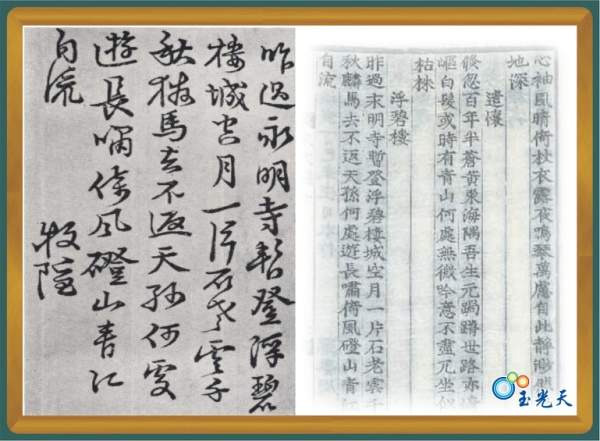 昨過永明寺暫登浮碧
樓城空月一片石老雲千
秋麟馬去不返天孫何處
遊長嘯倚風磴山青江
自流 牧隱
心袖風晴倚杖衣露夜鳴琴萬慮自此靜
地深
遣懷
倏忽百年半蒼黃東海隅吾生元跼蹐世路亦崎
嶇白髮或時有青山何處無微吟意不盡兀坐似
枯株
浮碧樓
昨過永明寺暫登浮碧樓城空月一片石老雲千
秋麟馬去不返天孫何處遊長嘯倚風磴山青江
自流
玉光天